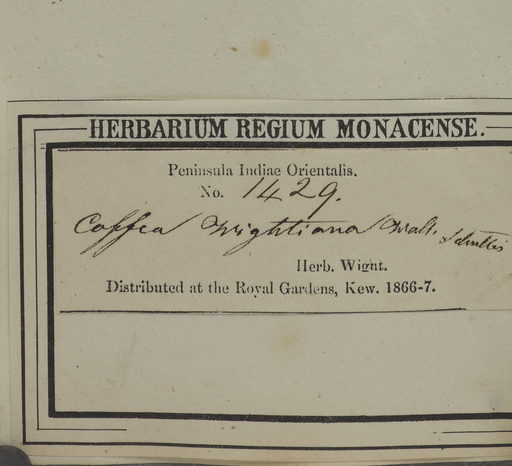 HERBARIUM REGIUM MONACENSE.
Peninsula Indiae Orientalis.
No. 1429.
Coffea Wightiana Wall.
Herb. Wight.
Distributed at the Royal Gardens, Kew. 1866-7.